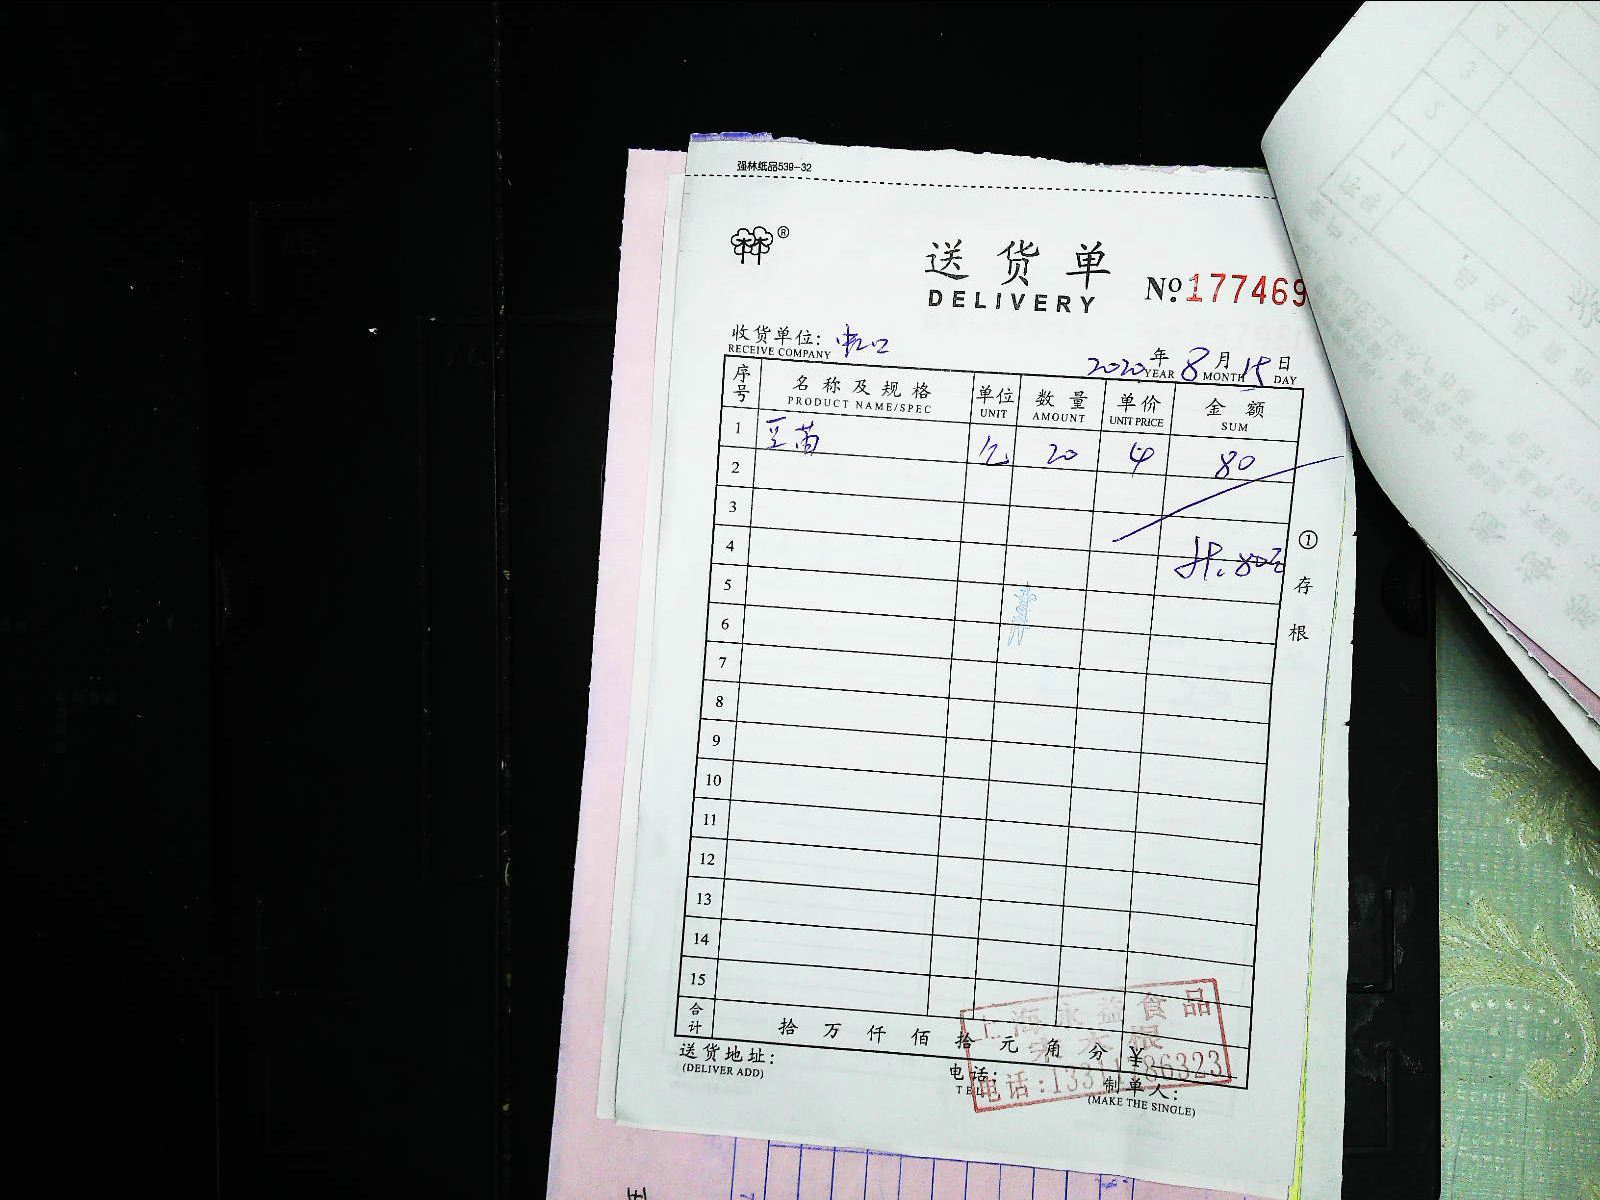 强林纸品539-32
®
送货单
DELIVERY
№177469
收货单位：虹口
RECEIVE COMPANY
2020年8月15日
YEAR MONTH DAY
序号 名称及规格 单位 数量 单价 金额
PRODUCT NAME/SPEC UNIT AMOUNT UNIT PRICE SUM
1 豆苗 20 4 80
2
3
4 共.80元
5
6
7
8
9
10
11
12
13
14
15
①存根
合计 拾 万 仟 佰 拾 元 角 分 ¥
上海永益食品
送货地址：
(DELIVER ADD)
电话：
TEL
制单人：
(MAKE THE SINGLE)